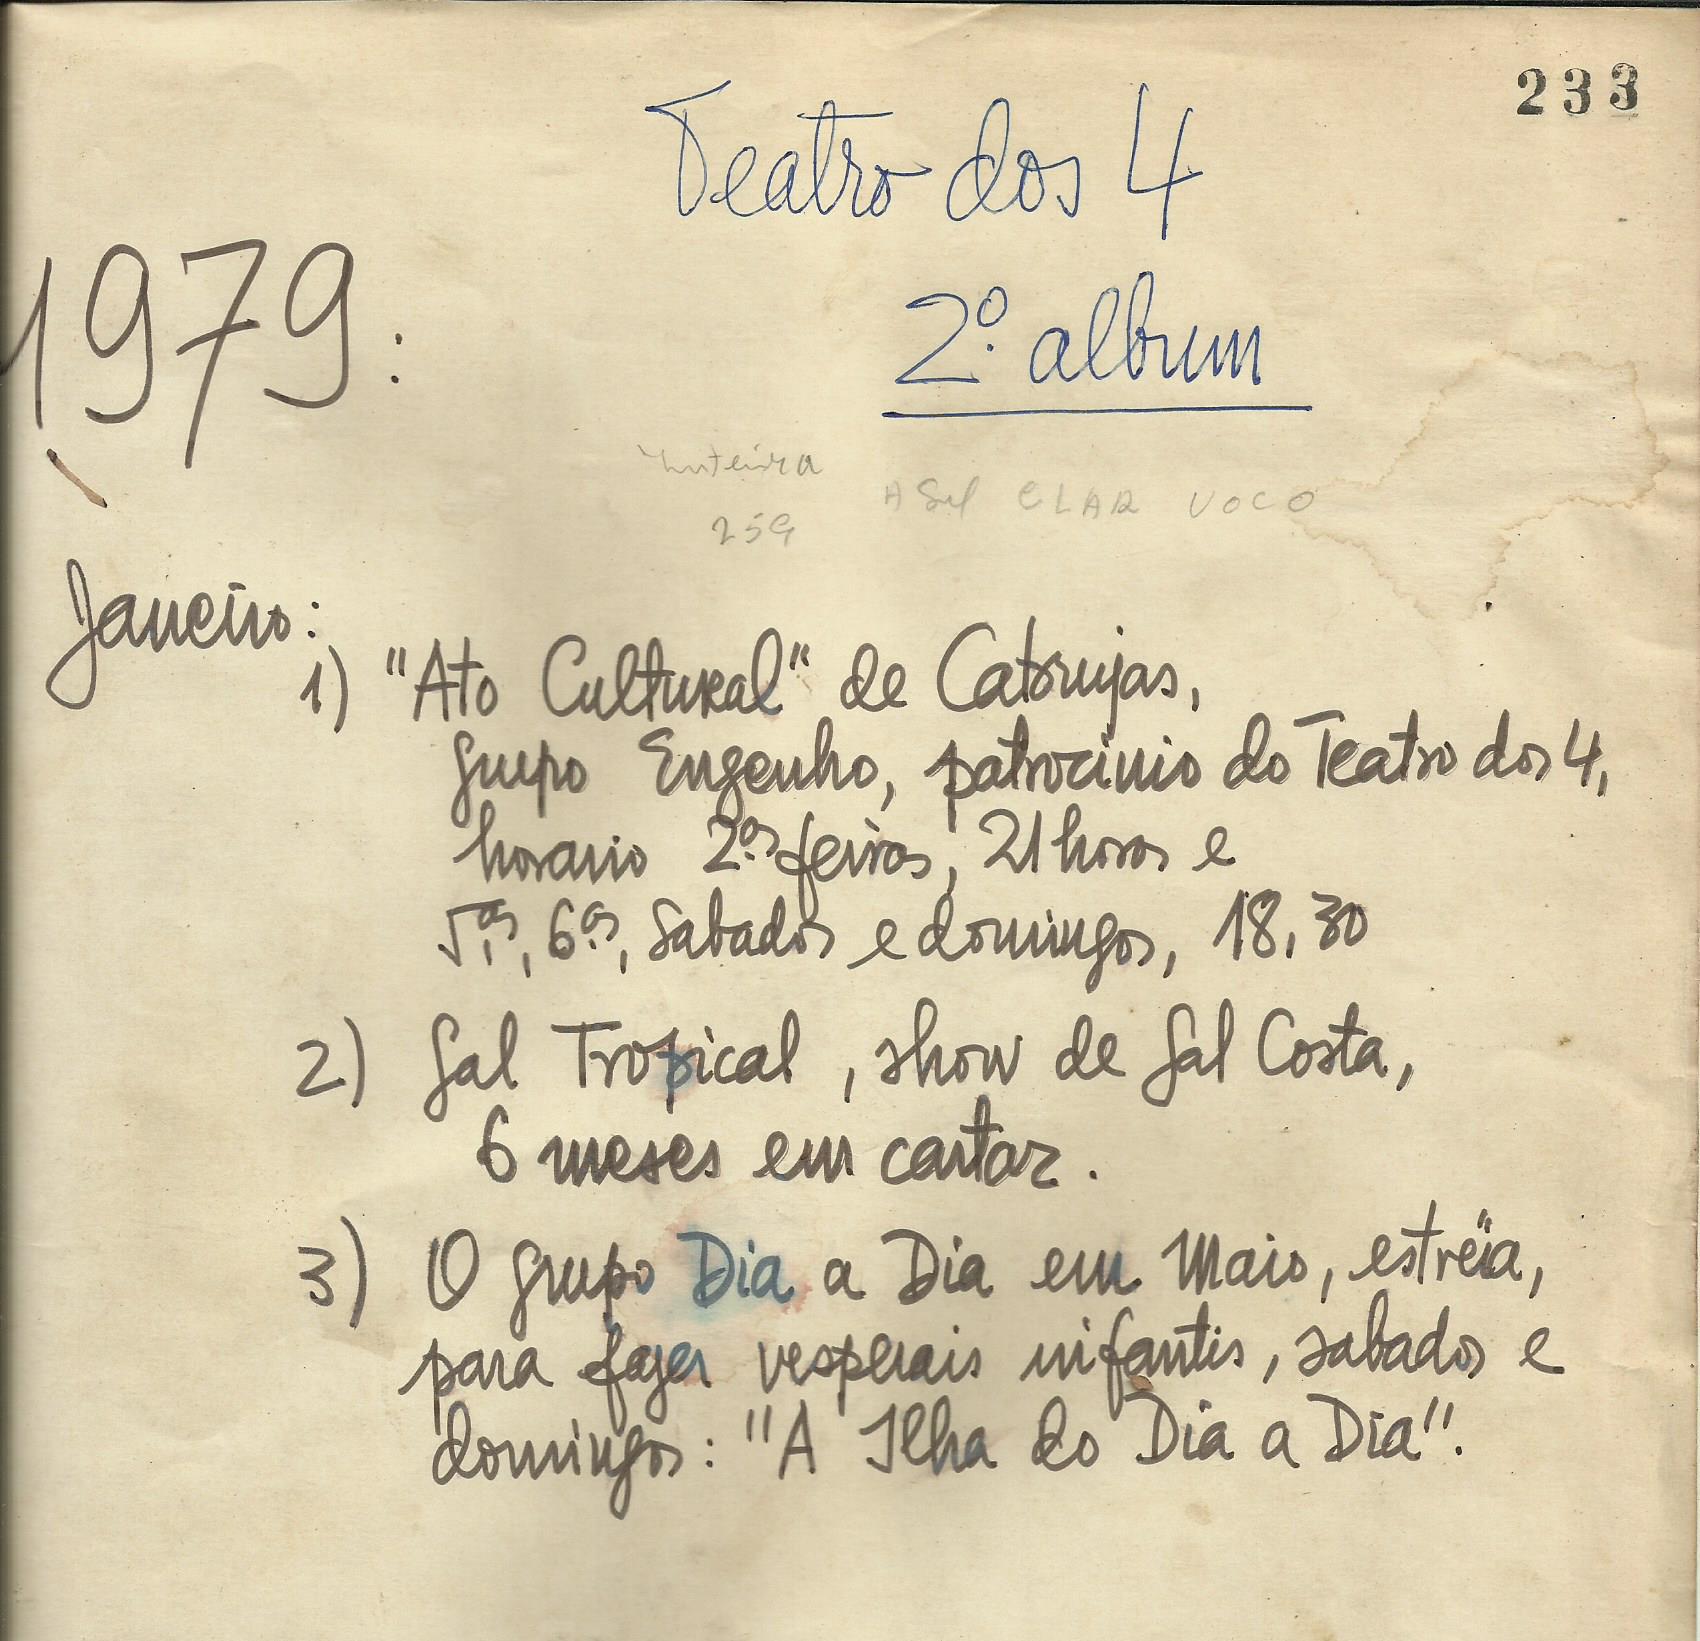 233
Teatro dos 4
2º album
1979:
259
Janeiro:
1) "Ato Cultural" de Cabrujas,
grupo Engenho, patrocinio do Teatro dos 4,
horario 2ªs feiras, 21 horas e
5ªs, 6ªs, sabados e domingos, 18,30
2) Gal Tropical, show de Gal Costa,
6 meses em cartaz.
3) O grupo Dia a Dia em Maio, estréia,
para fazer vesperais infantis, sabados e
domingos: "A Ilha do Dia a Dia".